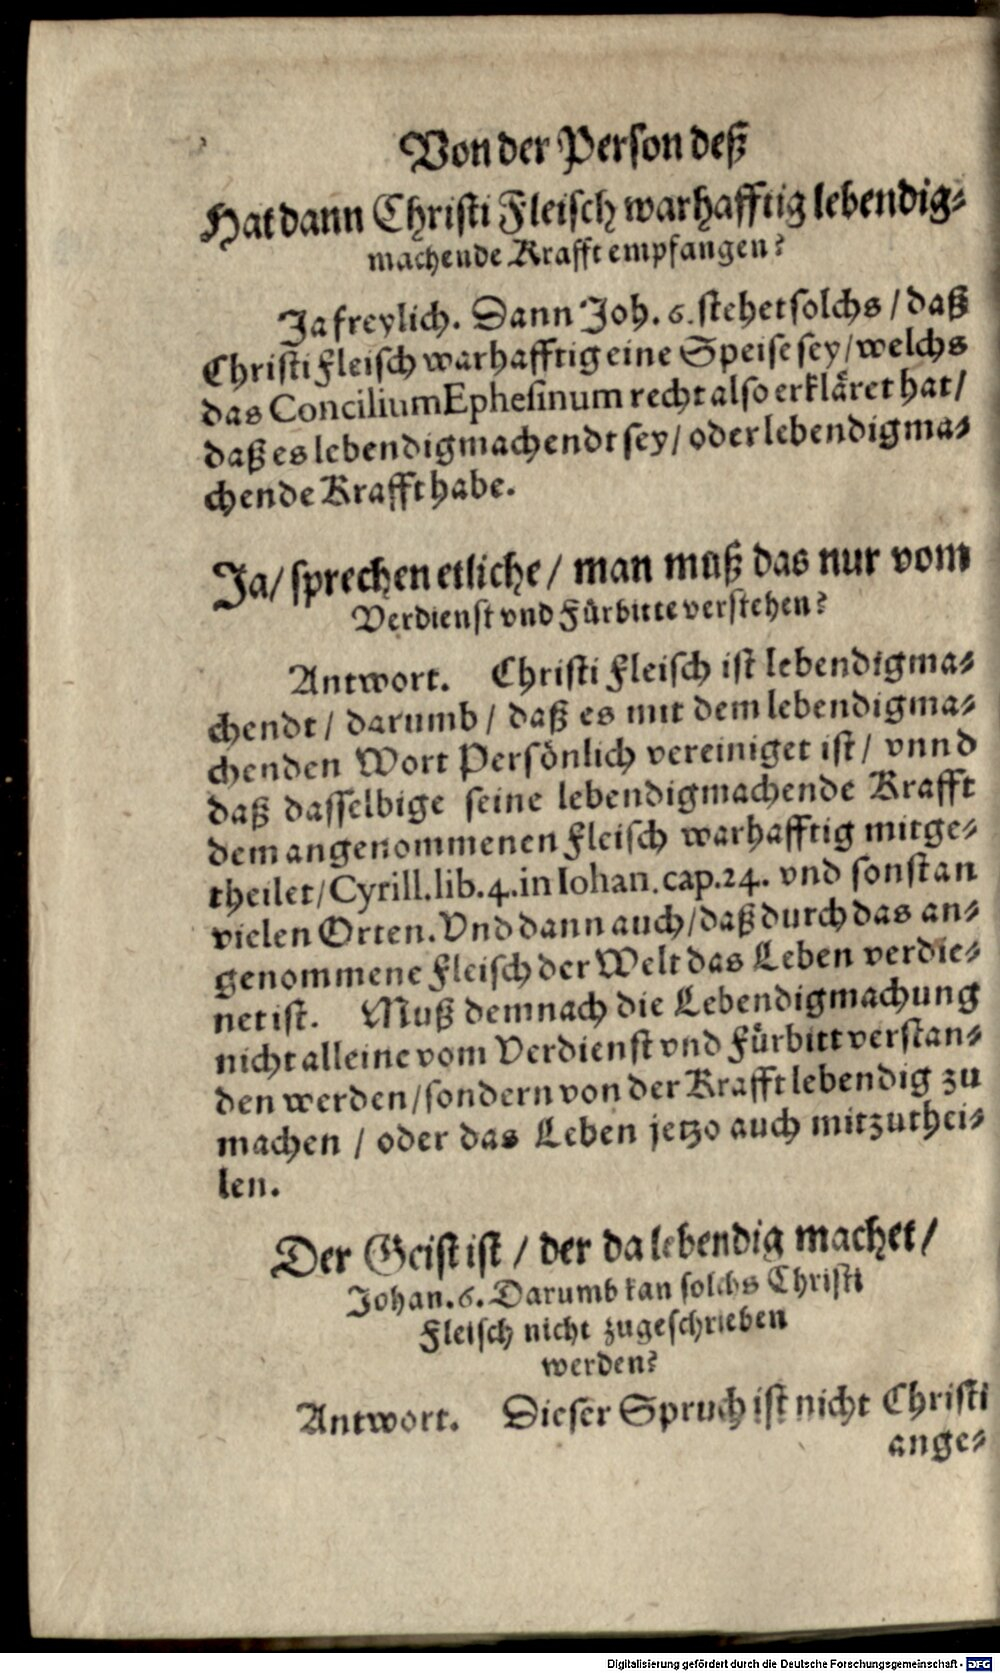 Von der Person deß
Hat dann Christi Fleisch warhafftig lebendig-
machende Krafft empfangen?
Ja freylich. Dann Joh. 6. stehet solchs / daß
Christi Fleisch warhafftig eine Speise sey / welchs
das Concilium Ephesinum recht also erkläret hat /
daß es lebendigmachendt sey / oder lebendigma-
chende Krafft habe.
Ja / sprechen etliche / man muß das nur vom
Verdienst vnd Fürbitte verstehen?
Antwort. Christi Fleisch ist lebendigma-
chendt / darumb / daß es mit dem lebendigma-
chenden Wort Persönlich vereiniget ist / vnnd
daß dasselbige seine lebendigmachende Krafft
dem angenommenen Fleisch warhafftig mitge-
theilet / Cyrill. lib. 4. in Iohan. cap. 24. vnd sonst an
vielen Orten. Vnd dann auch / daß durch das an-
genommene Fleisch der Welt das Leben verdie-
net ist. Muß demnach die Lebendigmachung
nicht alleine vom Verdienst vnd Fürbitt verstan-
den werden / sondern von der Krafft lebendig zu
machen / oder das Leben jetzo auch mitzuthei-
len.
Der Geist ist / der da lebendig machet /
Johan. 6. Darumb kan solchs Christi
Fleisch nicht zugeschrieben
werden?
Antwort. Dieser Spruch ist nicht Christi
ange-
Digitalisierung gefördert durch die Deutsche Forschungsgemeinschaft - DFG